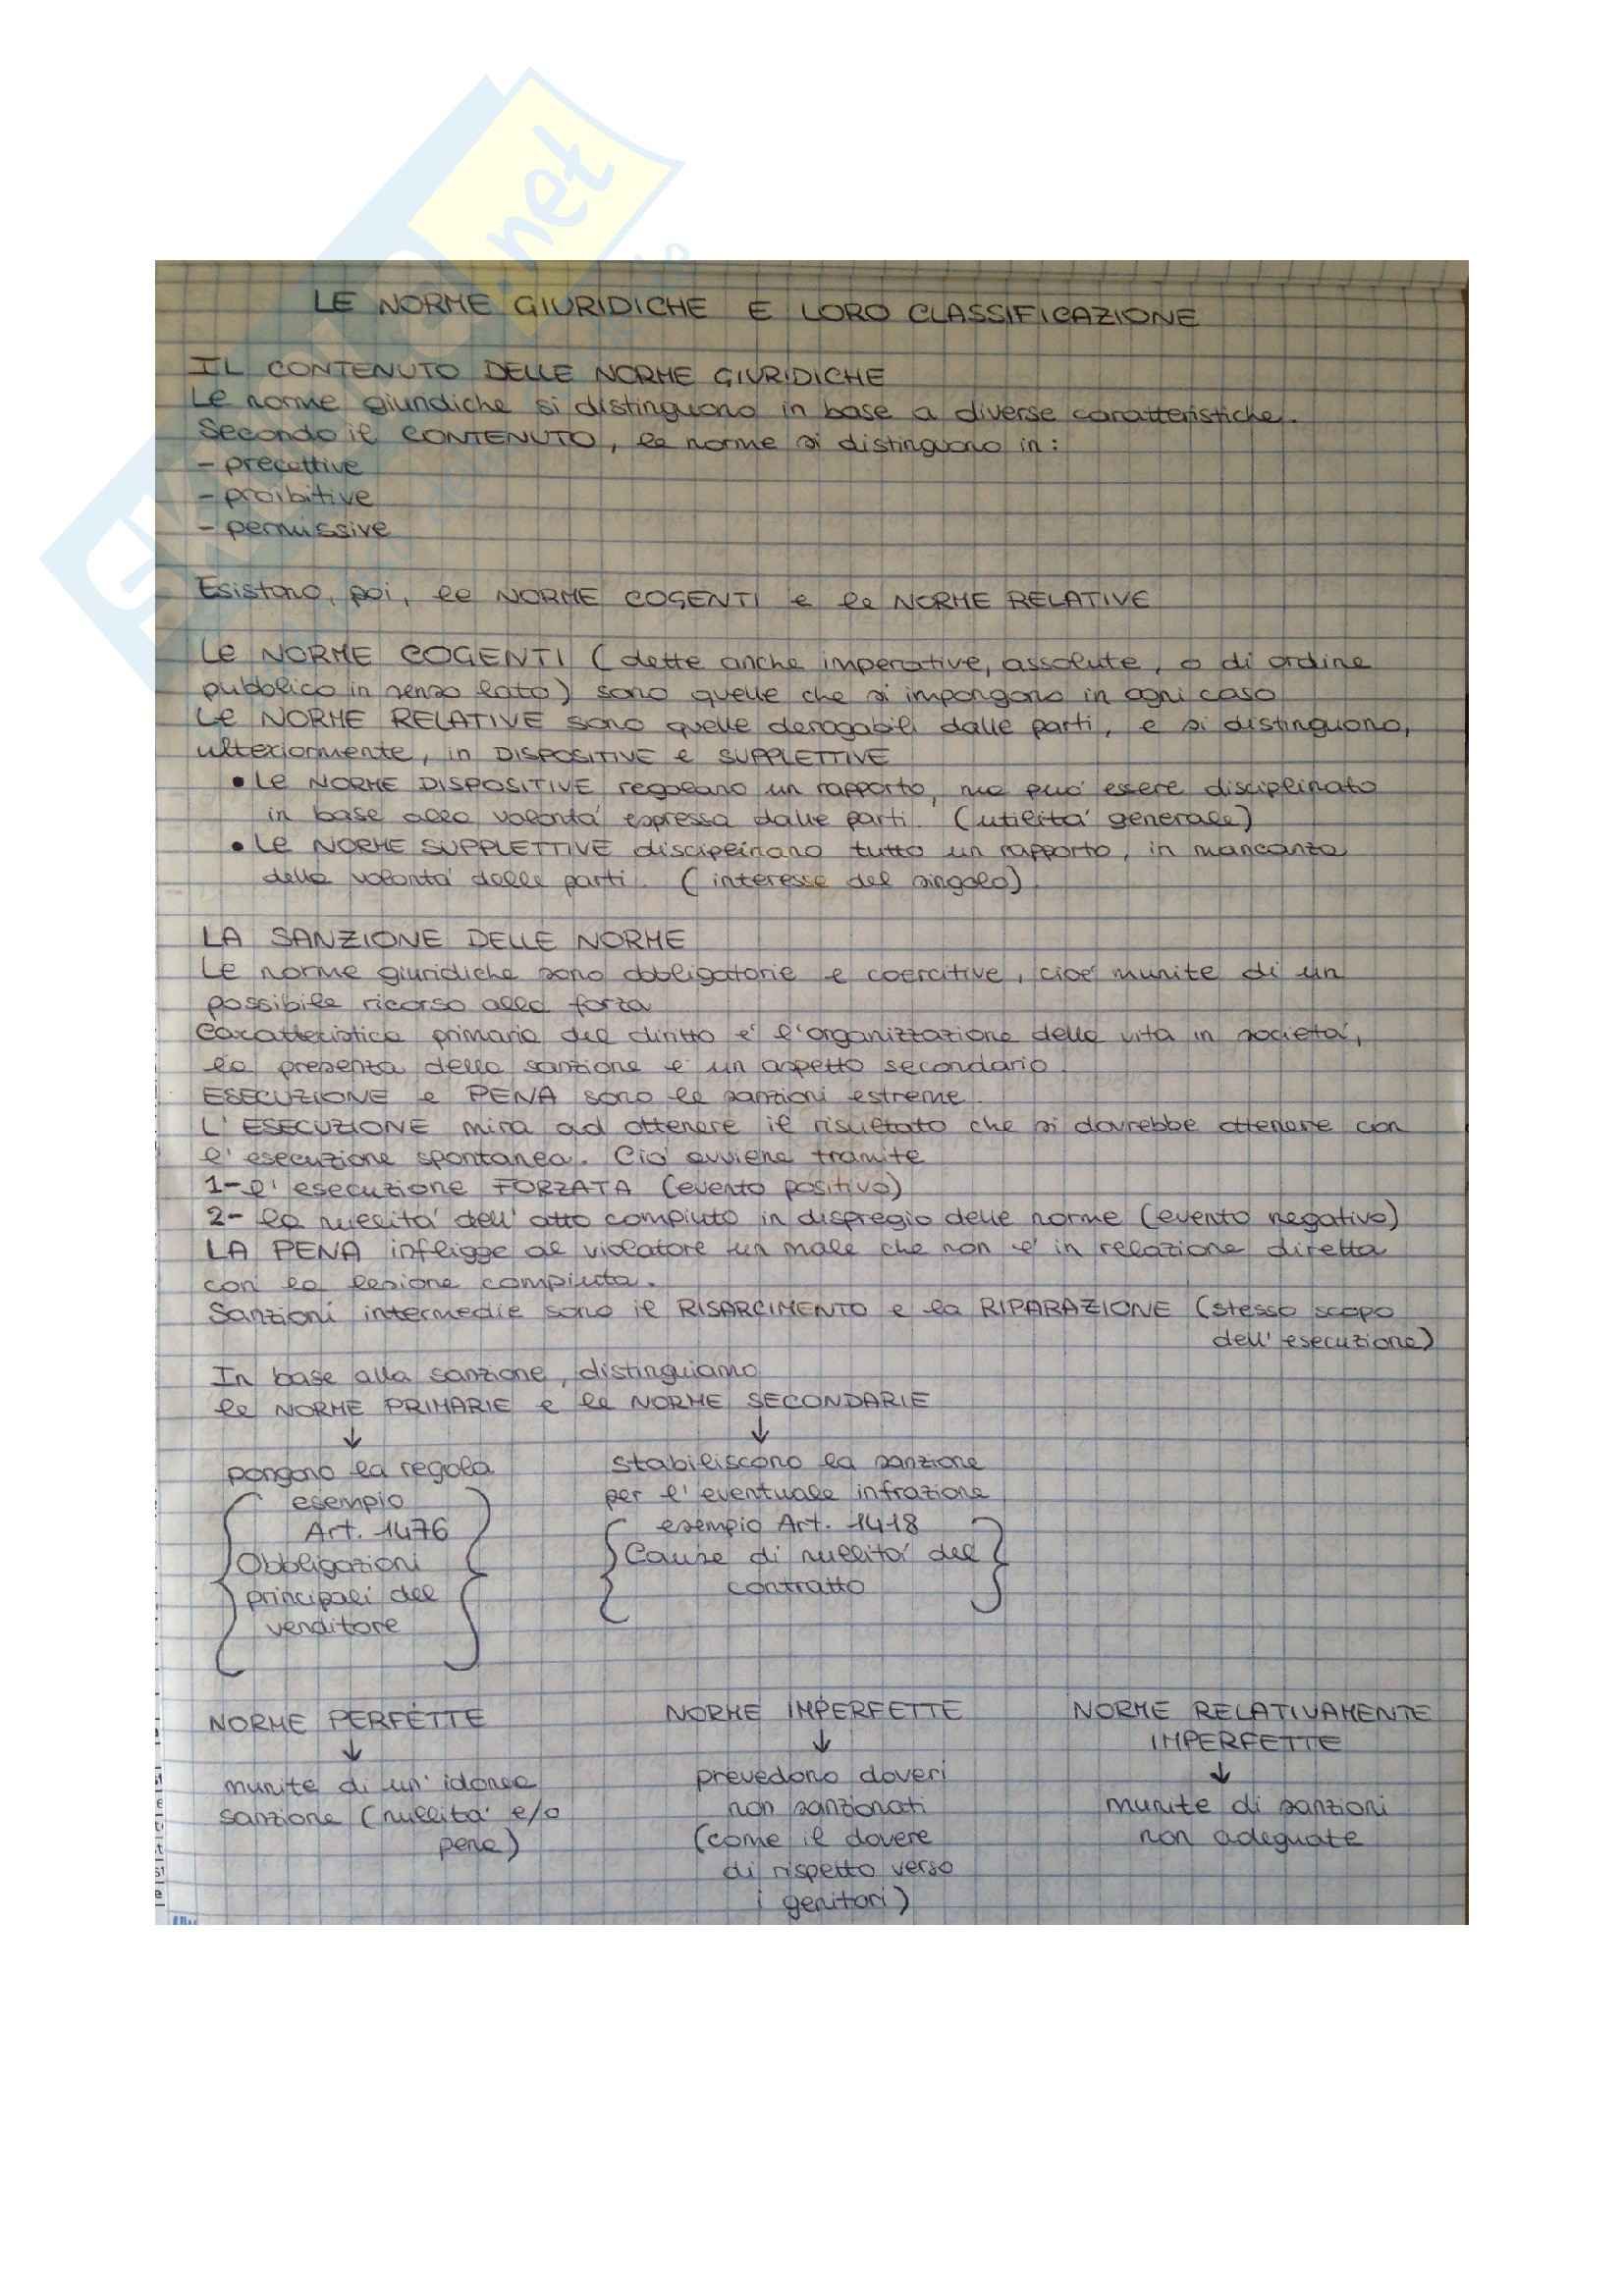 .net
LE NORME GIURIDICHE E LORO CLASSIFICAZIONE
IL CONTENUTO DELLE NORME GIURIDICHE
Le norme giuridiche si distinguono in base a diverse caratteristiche.
Secondo il CONTENUTO, le norme si distinguono in:
- precettive
- proibitive
- permissive
Esistono, poi, le NORME COGENTI e le NORME RELATIVE
Le NORME COGENTI (dette anche imperative, assolute, o di ordine
pubblico in senso lato) sono quelle che si impongono in ogni caso
Le NORME RELATIVE sono quelle derogabili dalle parti, e si distinguono,
ulteriormente, in DISPOSITIVE e SUPPLETTIVE
• Le NORME DISPOSITIVE regolano un rapporto, ma può essere disciplinato
in base alla volontà espressa dalle parti. (utilità generale)
• Le NORME SUPPLETTIVE disciplinano tutto un rapporto, in mancanza
della volontà delle parti. (interesse del singolo)
LA SANZIONE DELLE NORME
Le norme giuridiche sono obbligatorie e coercitive, cioè munite di un
possibile ricorso alla forza
Caratteristica primaria del diritto è l'organizzazione della vita in società,
la presenza della sanzione è un aspetto secondario.
ESECUZIONE e PENA sono le sanzioni estreme.
L'ESECUZIONE mira ad ottenere il risultato che si dovrebbe ottenere con
l'esecuzione spontanea. Ciò avviene tramite
1- l'esecuzione FORZATA (evento positivo)
2- la nullità dell'atto compiuto in dispregio delle norme (evento negativo)
LA PENA infligge al violatore un male che non è in relazione diretta
con la lesione compiuta.
Sanzioni intermedie sono il RISARCIMENTO e la RIPARAZIONE (stesso scopo
dell'esecuzione)
In base alla sanzione, distinguiamo
le NORME PRIMARIE e le NORME SECONDARIE
↓ ↓
pongono la regola
esempio
Art. 1476
Obbligazioni
principali del
venditore
stabiliscono la sanzione
per l'eventuale infrazione
esempio Art. 1418
Cause di nullità del
contratto
NORME PERFETTE
↓
munite di un'idonea
sanzione (nullità e/o
pena)
NORME IMPERFETTE
↓
prevedono doveri
non sanzionati
(come il dovere
di rispetto verso
i genitori)
NORME RELATIVAMENTE
IMPERFETTE
↓
munite di sanzioni
non adeguate